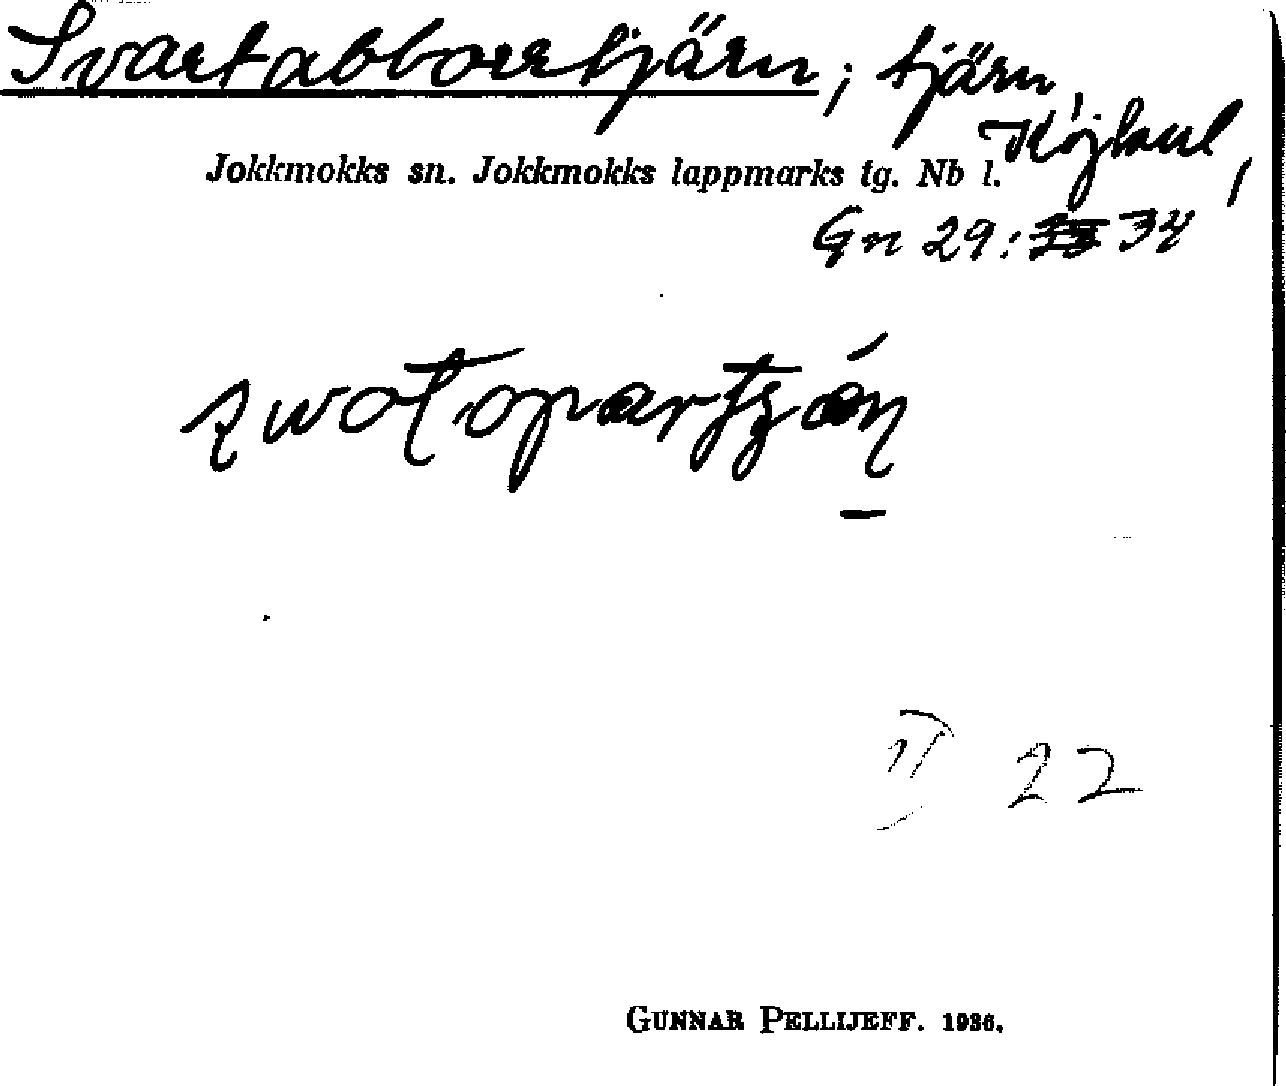 Svartabborrtjärn; tjärn,
Jokkmokks sn. Jokkmokks lappmarks tg. Nb l.
Gn 29: 34
II 22
GUNNAR PELLIJEFF. 1936.